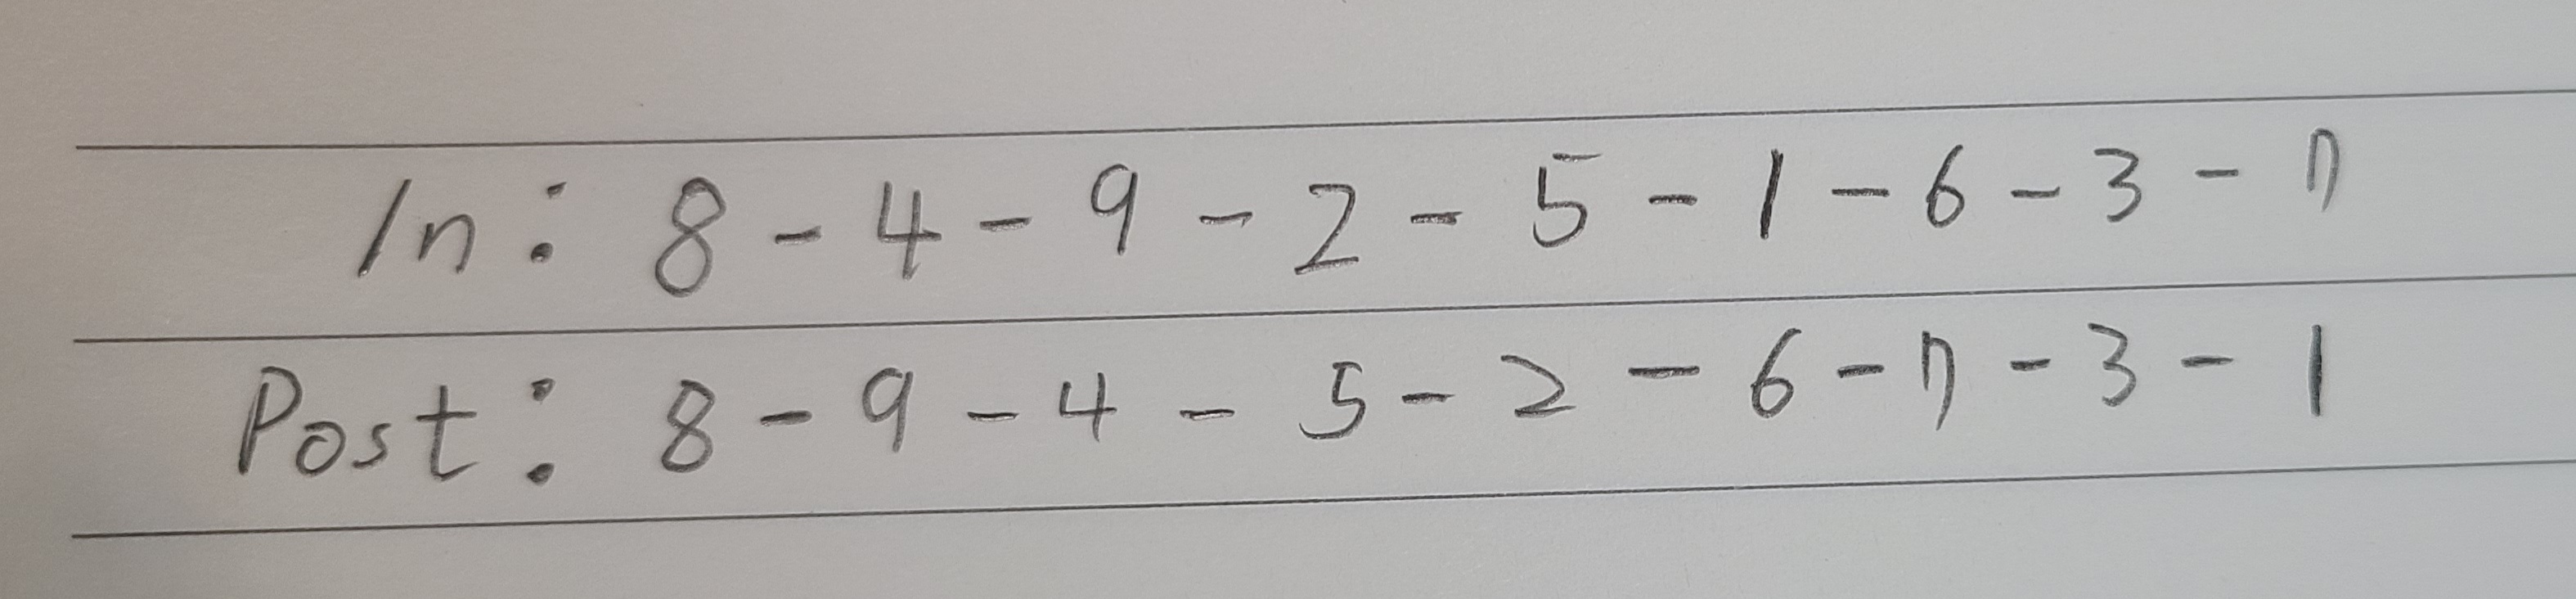 In: 8 - 4 - 9 - 2 - 5 - 1 - 6 - 3 - 7
Post: 8 - 9 - 4 - 5 - 2 - 6 - 7 - 3 - 1